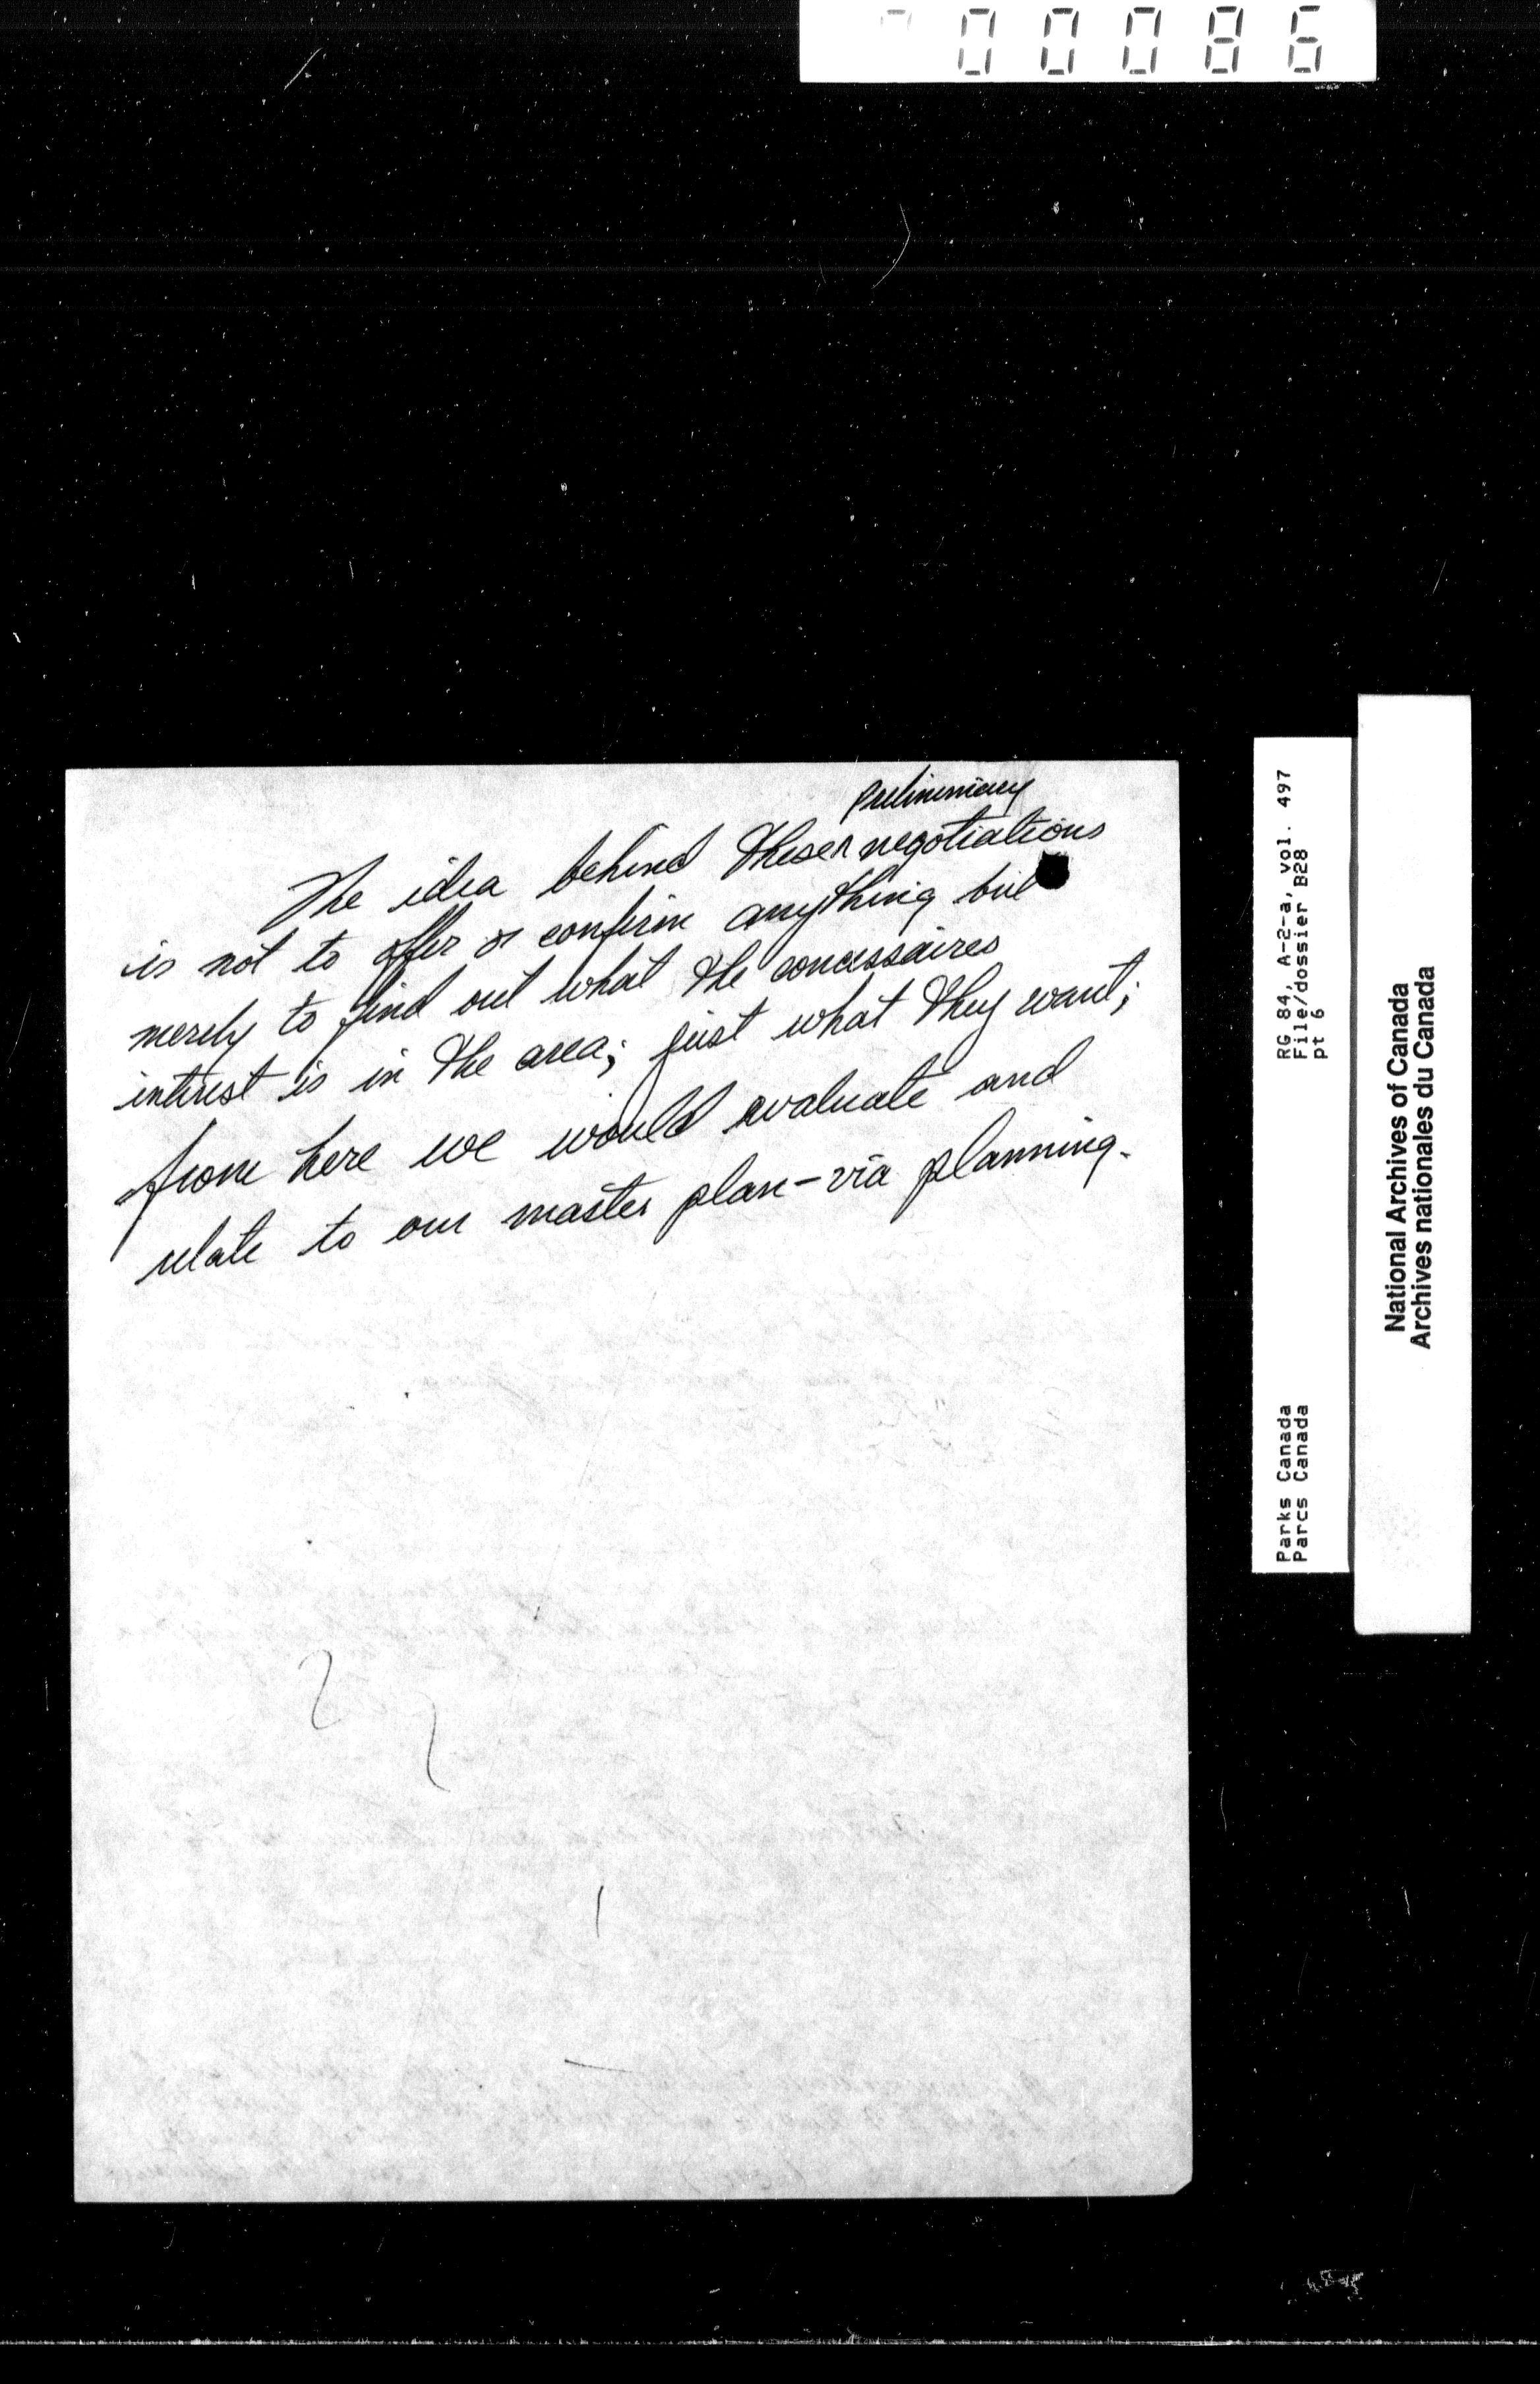 00086
preliminary
The idea behind these ^ negotiations
is not to offer or confirm anything but
merely to find out what the concessaires
interest is in the area; just what they want;
from here we would evaluate and
relate to our master plan - via planning.
RG 84, A-2-a, vol. 497
File/dossier B28
pt 6
Parks Canada
Parcs Canada
National Archives of Canada
Archives nationales du Canada